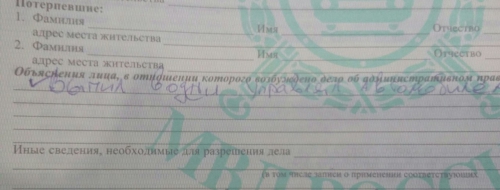 Потерпевшие:
1. Фамилия Имя Отчество
адрес места жительства
2. Фамилия Имя Отчество
адрес места жительства
Объяснения лица, в отношении которого возбуждено дело об административном прав
выпил водки управлял автомобилем
Иные сведения, необходимые для разрешения дела
(в том числе записи о применении соответствующих
МВД РОССИ